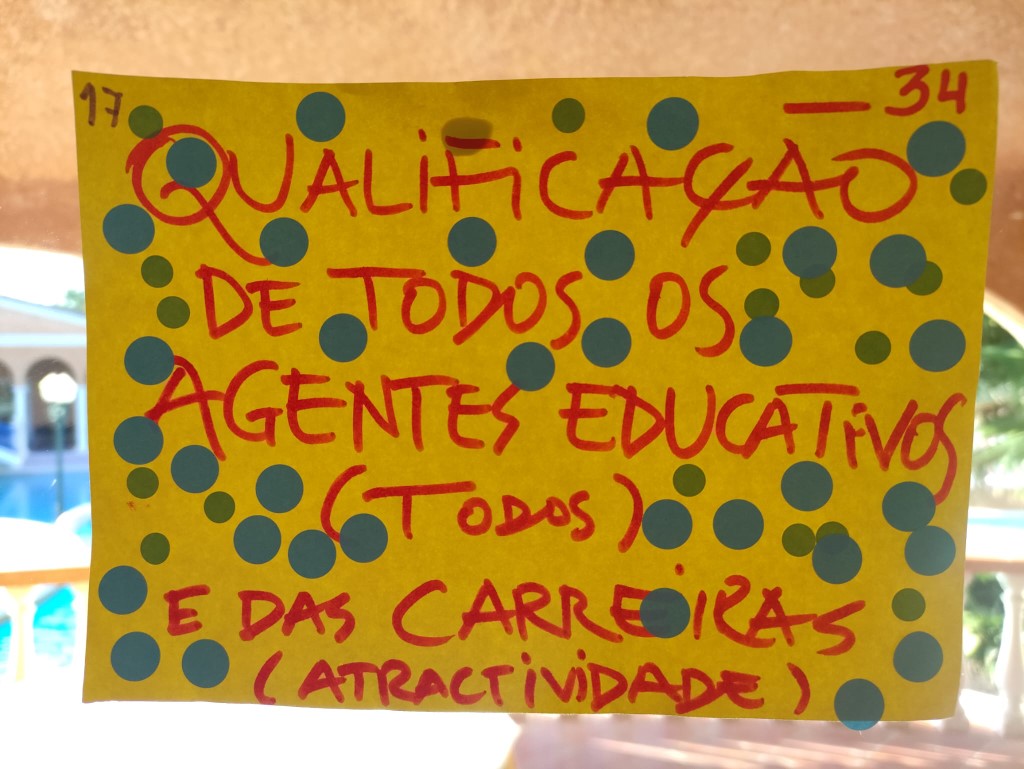 17 — 34
QUALIFICAÇAO
DE TODOS OS
AGENTES EDUCATIVOS
(TODOS)
E DAS CARREIRAS
(ATRACTIVIDADE)